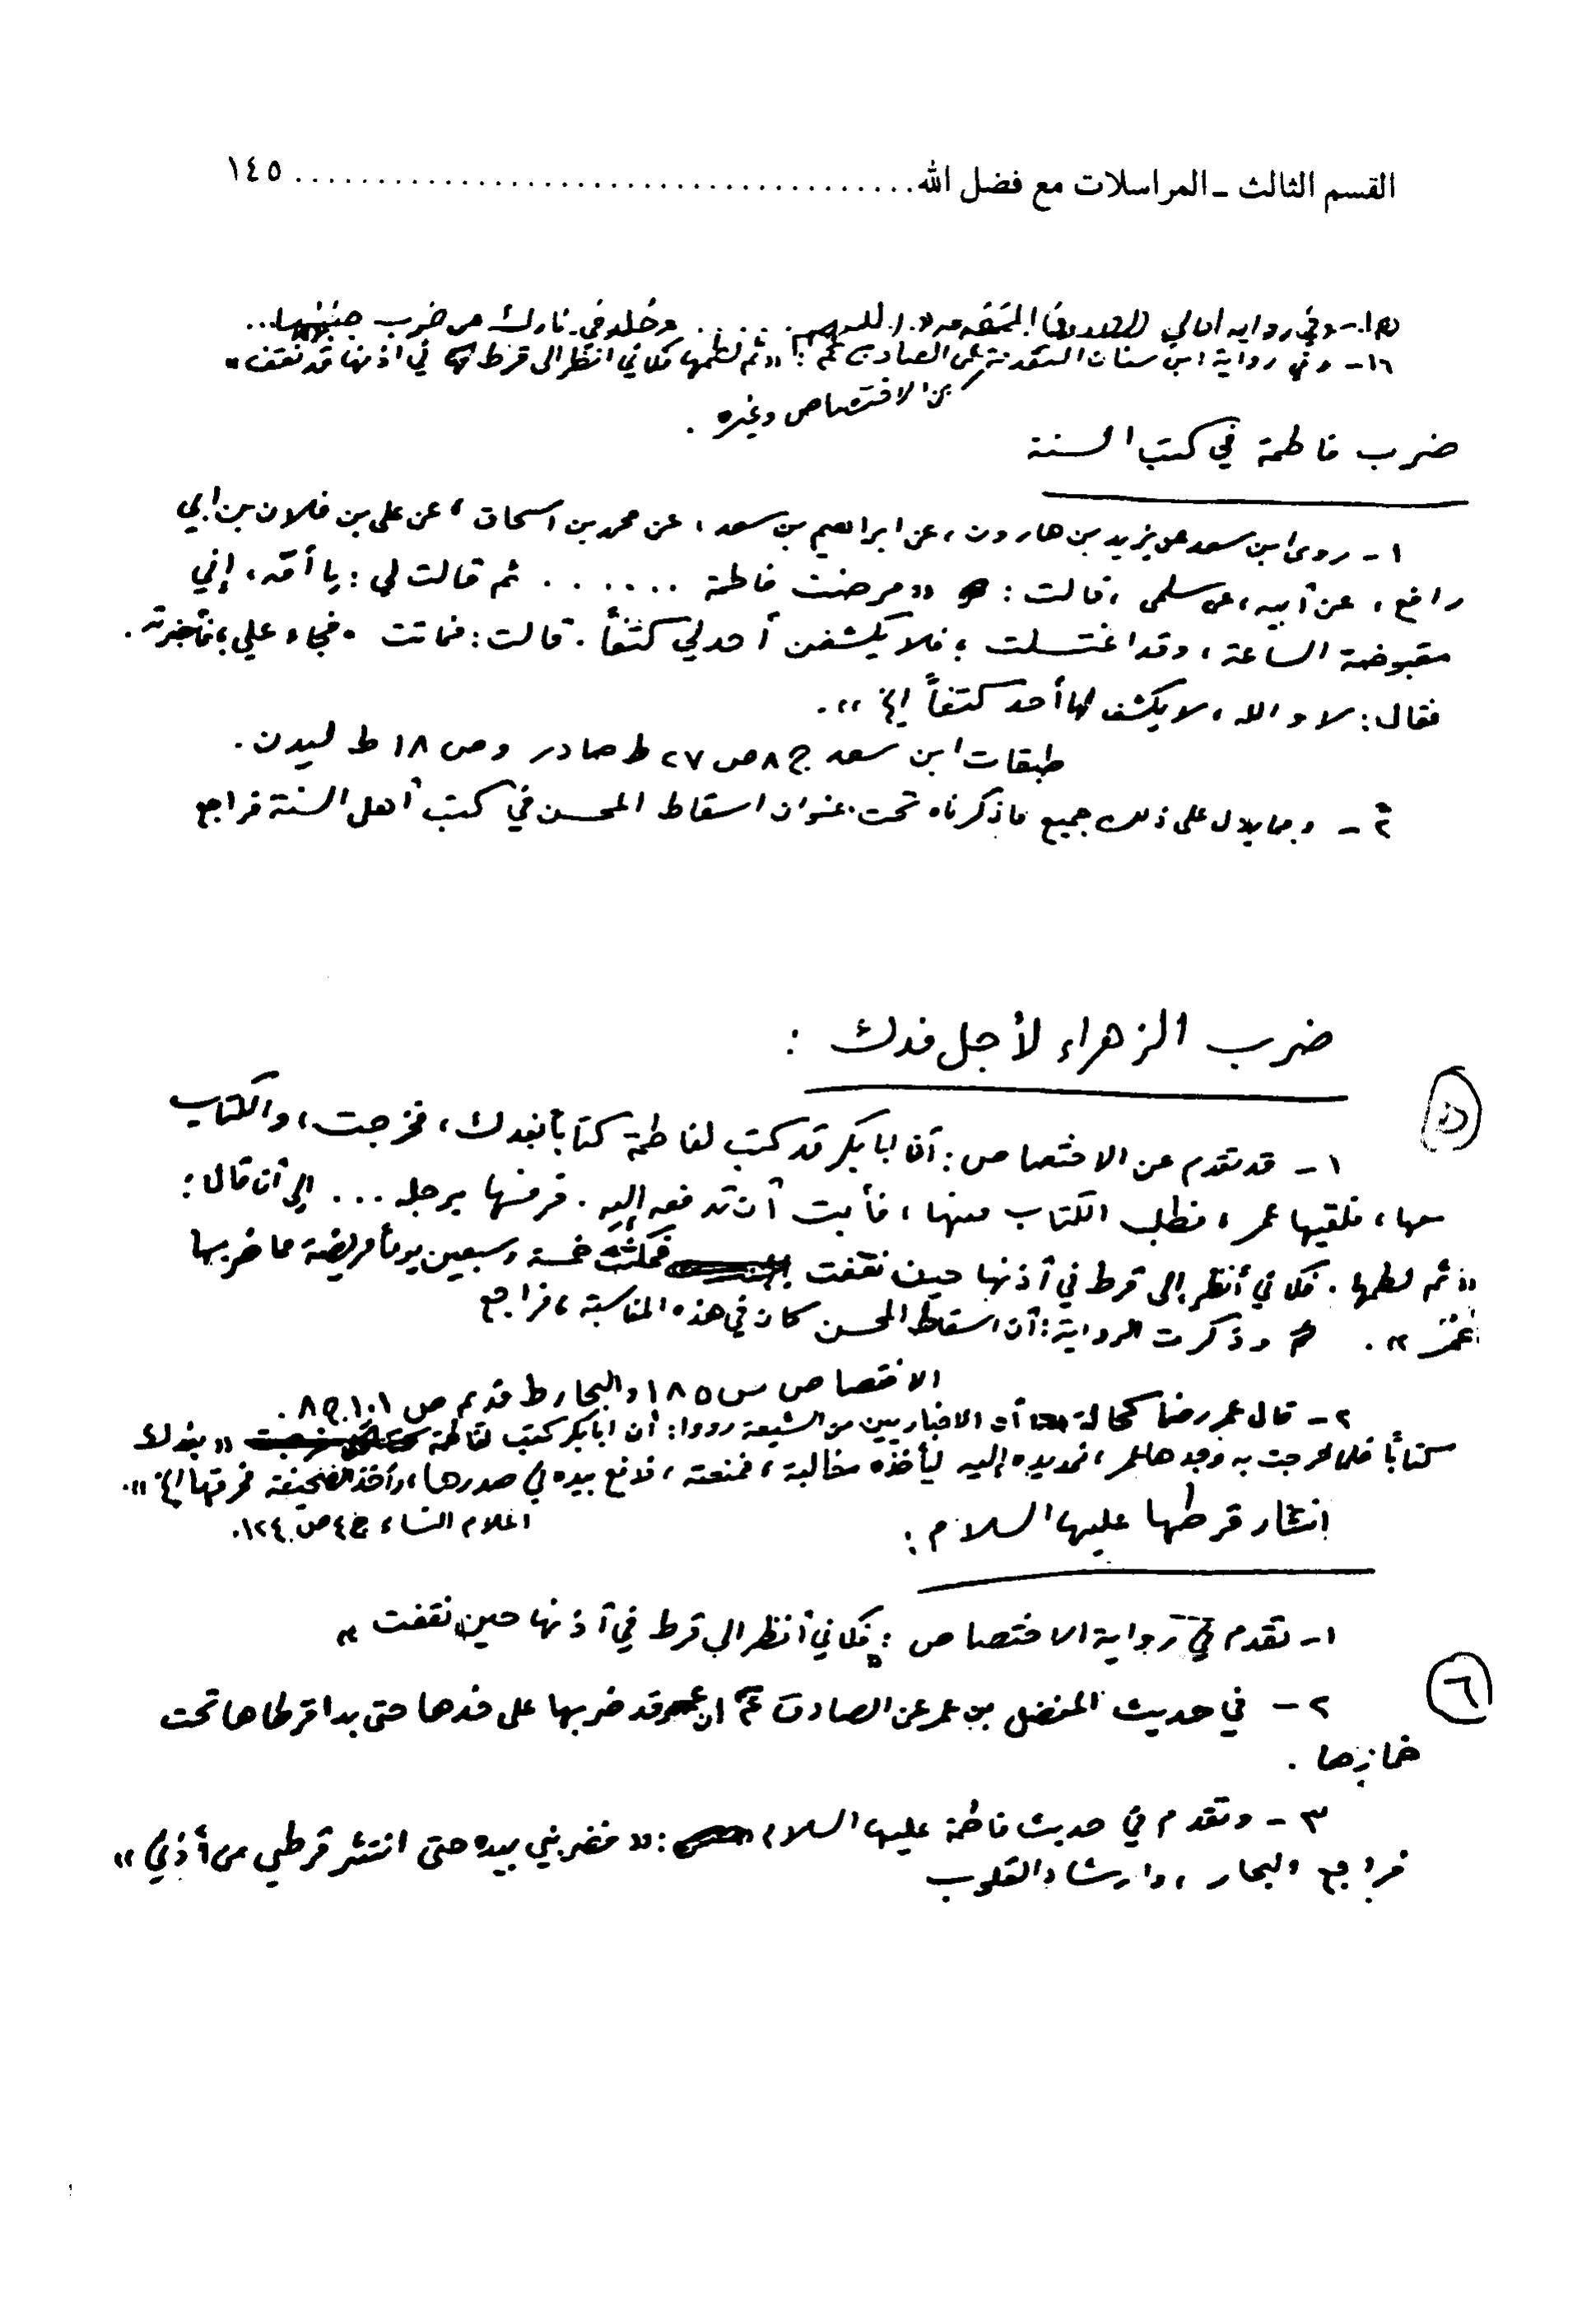 القسم الثالث ـ المراسلات مع فضل الله ........................................ ١٤٥
١٥ـ وفي رواية أمالي الصدوق المتقدمة «..اللهم ...... وخلد في نارك من ضرب جنبيها...
١٦ـ وفي رواية ابن سنان المتقدمة عن الصادق ع: «ثم لطمها فكأني انظر الى قرط في اذنها قد نقف»
عن الاختصاص وغيره .
ضرب فاطمة في كتب السنة
١ـ روى ابن سعد عن يزيد بن هارون، عن ابراهيم بن سعد، عن محمد بن اسحاق، عن علي بن فلان بن ابي
رافع، عن أبيه، عن سلمى، قالت: «مرضت فاطمة ...... ثم قالت لي: يا أمّه، إني
مقبوضة الساعة، وقد اغتسلت؛ فلا يكشفن أحد لي كنفاً. قالت: فماتت. فجاء علي، فأخبرته.
فقال: لا والله، لا يكشف لها أحد كتفاً إلخ».
طبقات ابن سعد ج٨ ص ٢٧ ط صادر وص ١٨ ط ليدن.
٢ـ ومما يدل على ذلك جميع ما ذكرناه تحت عنوان اسقاط المحسن في كتب أهل السنة فراجع
ضرب الزهراء لأجل فدك :
٥
١ـ قد تقدم عن الاختصاص: أن ابا بكر قد كتب لفاطمة كتاباً بفدك، فخرجت، والكتاب
معها، فلقيها عمر، فطلب الكتاب منها، فأبت أن تدفعه إليه. فرفسها برجله ... إلى أن قال:
«ثم لطمها. فكأني أنظر إلى قرط في أذنها حين نقفت فمكثت خمسة وسبعين يوماً مريضة مما ضربها
عمر». وذكرت الرواية: أن اسقاط المحسن كان في هذه المناسبة، فراجع
الاختصاص ص ١٨٥ والبحار ط قديم ص ١٠١ ج ٨.
٢ـ قال عمر رضا كحالة أن الاخباريين من الشيعة رووا: أن ابا بكر كتب لفاطمة «بفدك
كتاباً فلما خرجت به وجدها عمر، فمد يده إليه ليأخذه مغالبة، فمنعته، فدفع بيده في صدرها، وأخذ الصحيفة فخرقها إلخ».
اعلام النساء ج٤ ص ١٢٤.
انتثار قرطها عليها السلام:
١ـ تقدم في رواية الاختصاص: «فكأني أنظر الى قرط في أذنها حين نقفت»
٦
٢ـ في حديث المفضل بن عمر عن الصادق ع ان عمر قد ضربها على خدها حتى بدا قرطاها تحت
خمارها .
٣ـ وتقدم في حديث فاطمة عليها السلام: «فضربني بيده حتى انتثر قرطي من أذني»
فراجع البحار، وارشاد القلوب